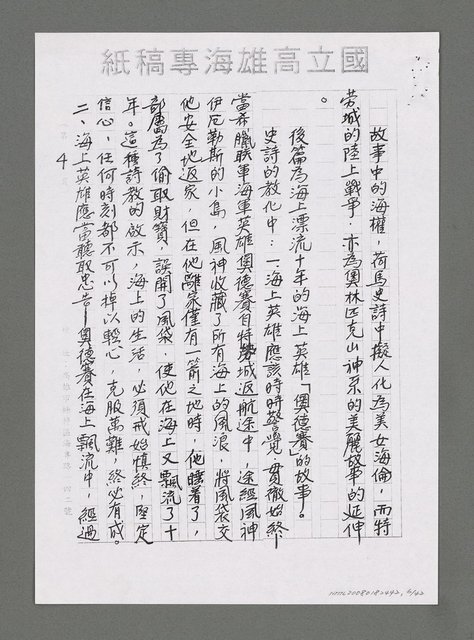 國立高雄海專稿紙
故事中的海權，荷馬史詩中擬人化為美女海倫，而特
勞城的陸上戰爭，亦為奧林匹克山神系的美麗故事的延伸
。
後篇為海上漂流十年的海上英雄「奧德賽」的故事。
史詩的教化中：一、海上英雄應該時時警覺，貫徹始終
當希臘聯軍海軍英雄奧德賽自特勞城返航途中，途經風神
伊厄勒斯的小島，風神收藏了所有海上的風浪，將風袋交
他安全地返家，但在他離家僅有一箭之地時，他睡着了，
部屬為了偷取財寶，誤開了風袋，使他在海上又飄流了十
年。這種詩教的啟示，海上的生活，必須戒始慎終，堅定
信心，任何時刻都不可以掉以輕心，克服萬難，終必有成。
二、海上英雄應當聽取忠告——奧德賽在海上飄流中，經過
4
NMTL20080182492, 6/42